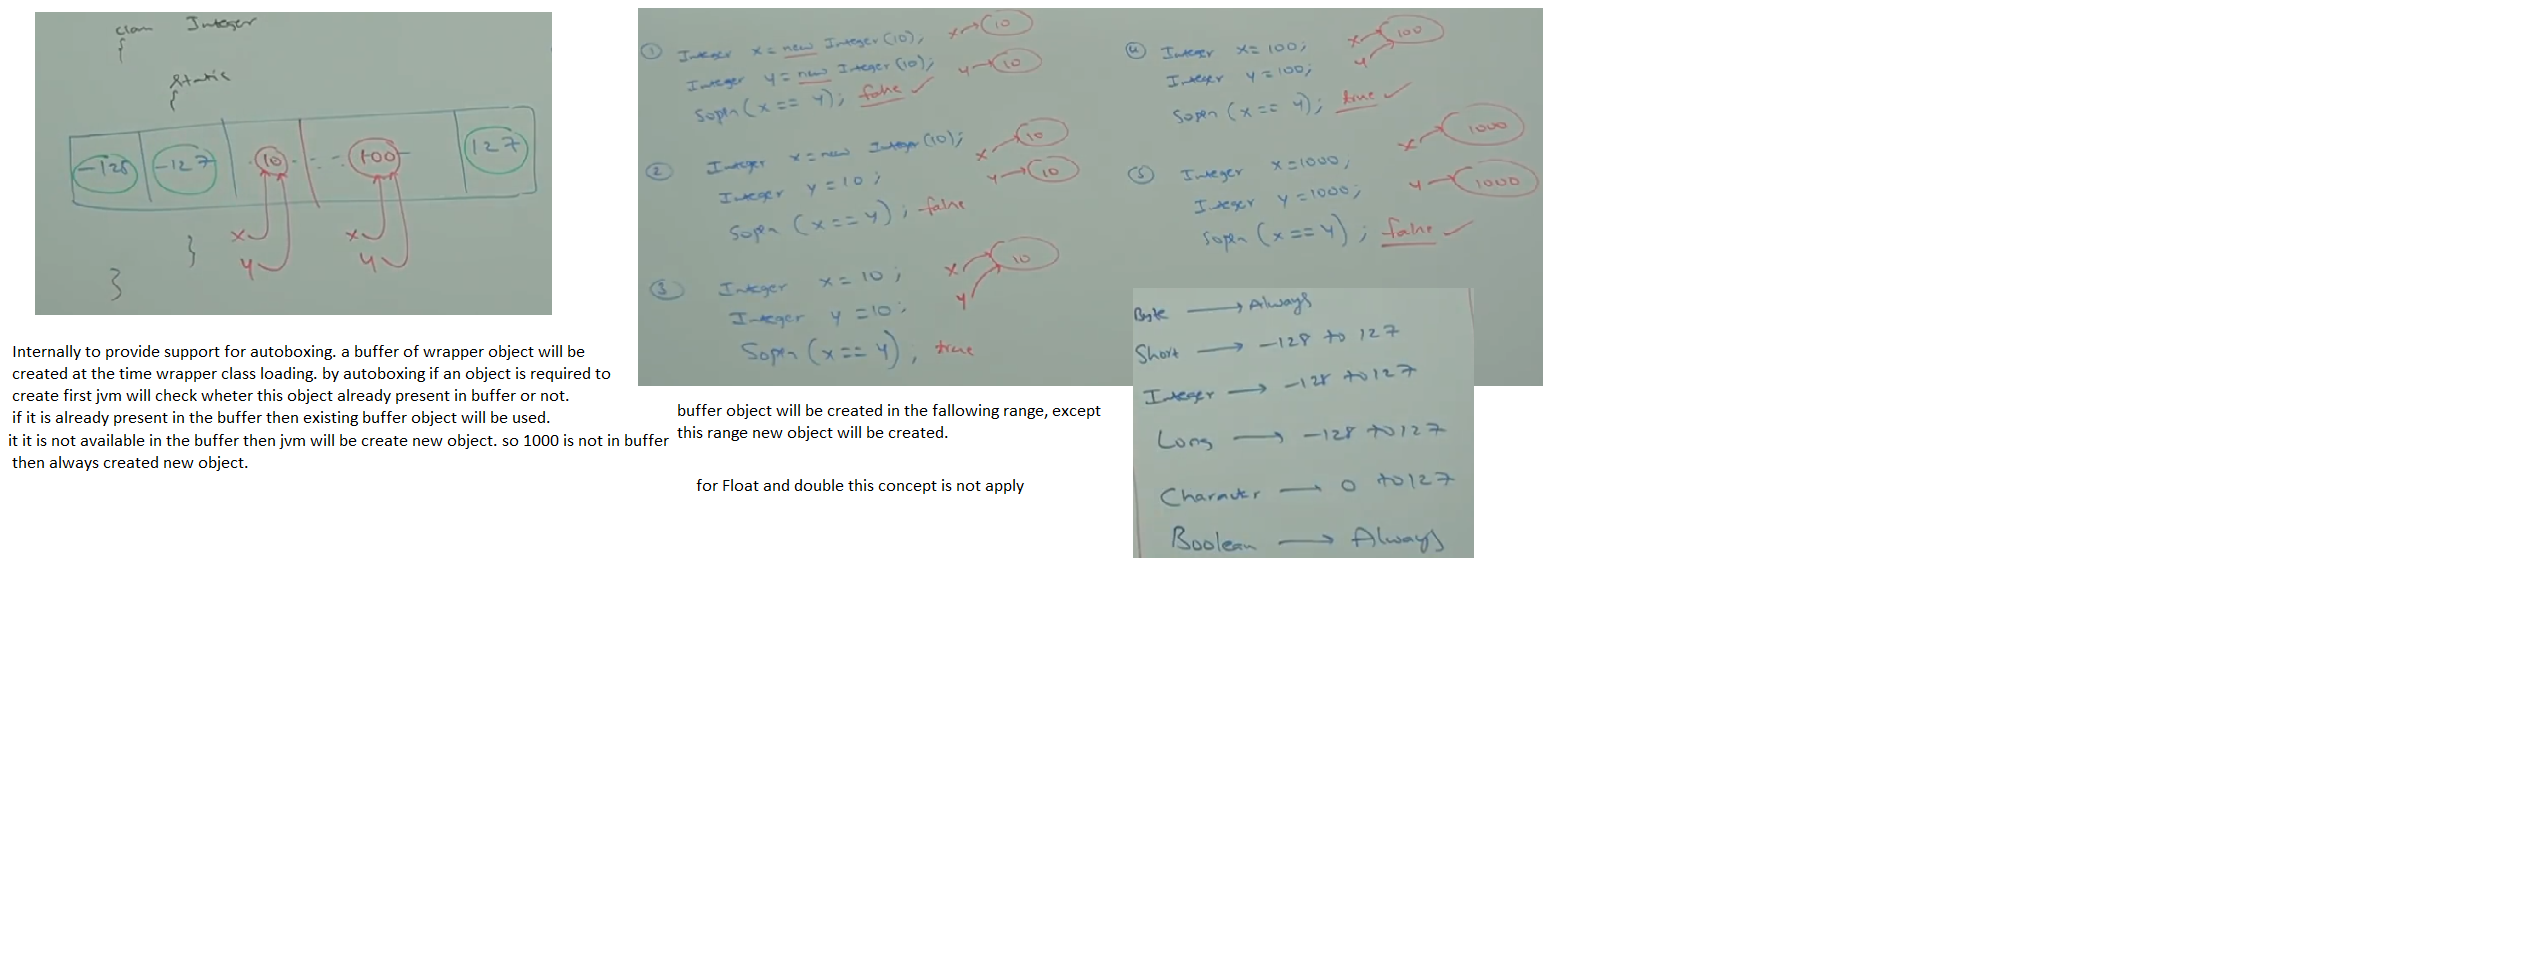 class Integer
{
static
{
-128 -127 10 - - - 100 127
x x
y y
}
}
Internally to provide support for autoboxing. a buffer of wrapper object will be
created at the time wrapper class loading. by autoboxing if an object is required to
create first jvm will check wheter this object already present in buffer or not.
if it is already present in the buffer then existing buffer object will be used.
it it is not available in the buffer then jvm will be create new object. so 1000 is not in buffer
then always created new object.
① Integer x = new Integer(10); x→10
Integer y = new Integer(10); y→10
Sopln(x == y); false ✓
② Integer x = new Integer(10); x→10
Integer y = 10; y→10
Sopln (x == y); false
③ Integer x = 10; x→10
Integer y = 10; y
Sopln (x == y); true
④ Integer x = 100; x→100
Integer y = 100; y
Sopln (x == y); true ✓
⑤ Integer x = 1000; x→1000
Integer y = 1000; y→1000
Sopln (x == y); false ✓
buffer object will be created in the fallowing range, except
this range new object will be created.
for Float and double this concept is not apply
Byte → Always
Short → -128 to 127
Integer → -128 to 127
Long → -128 to 127
Character → 0 to 127
Boolean → Always